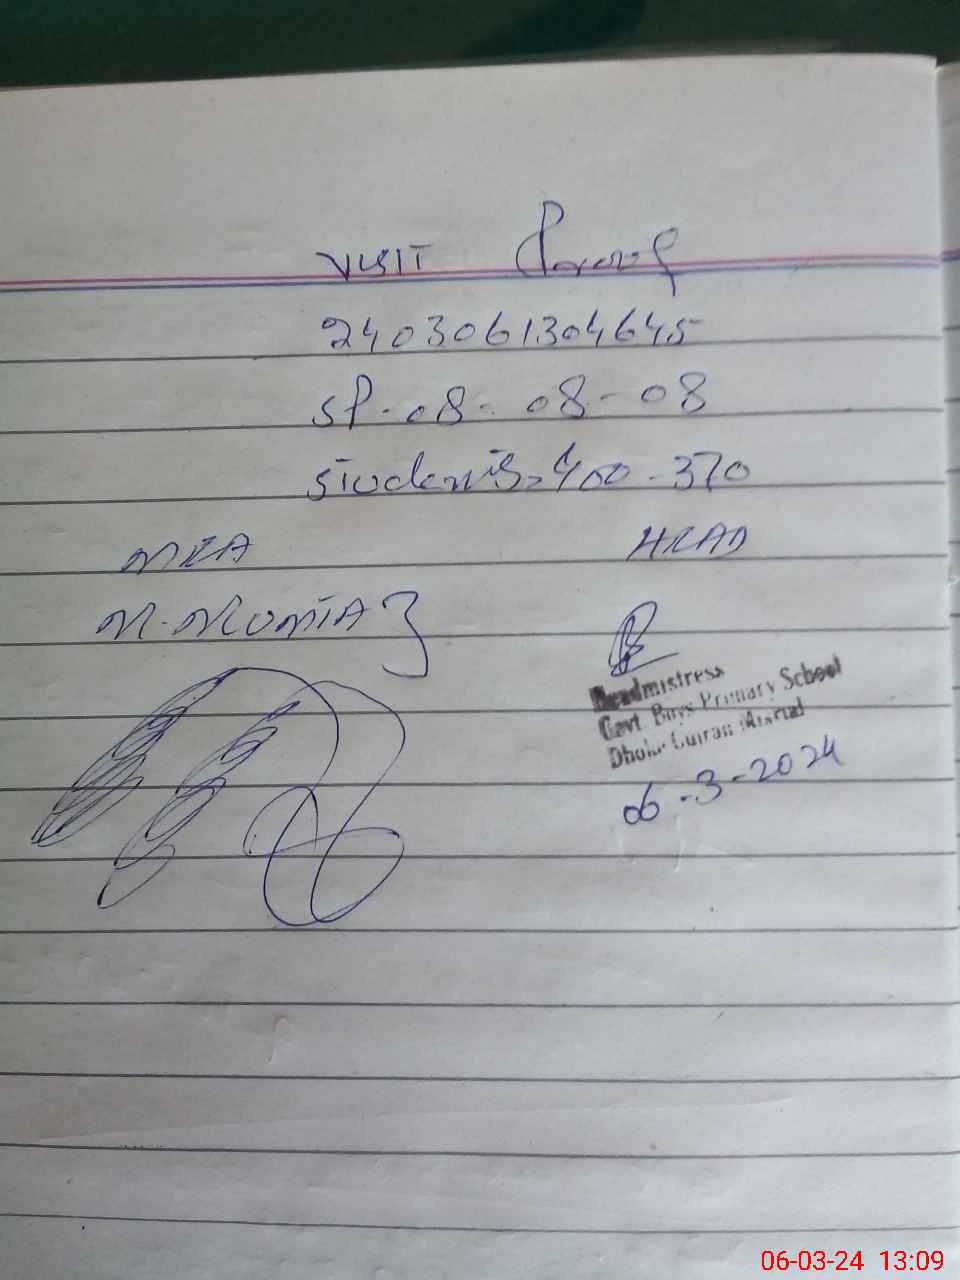 VISIT Proof
2403061304645
SP-08-08-08
Students=400-370
MEA HEAD
M.MUMTAZ
Headmistress
Govt. Boys Primary School
Dhoke
06-3-2024
06-03-24 13:09